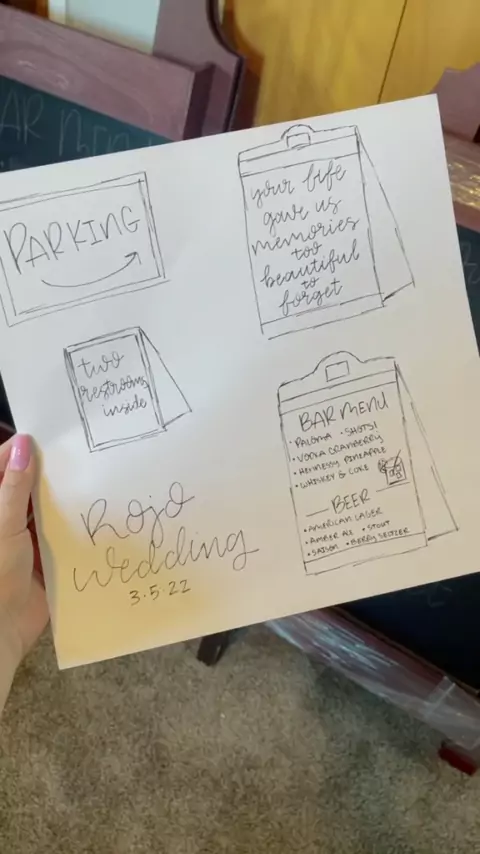 PARKING
your life
gave us
memories
too
beautiful
to
forget
two
restrooms
inside
BAR MENU
• PALOMA • SHOTS!
• VODKA CRANBERRY
• HENNESSY PINEAPPLE
• WHISKEY & COKE
BEER
• AMERICAN LAGER
• AMBER ALE • STOUT
• SAISON • BERRY SELTZER
Rojo
Wedding
3.5.22
AR MENU